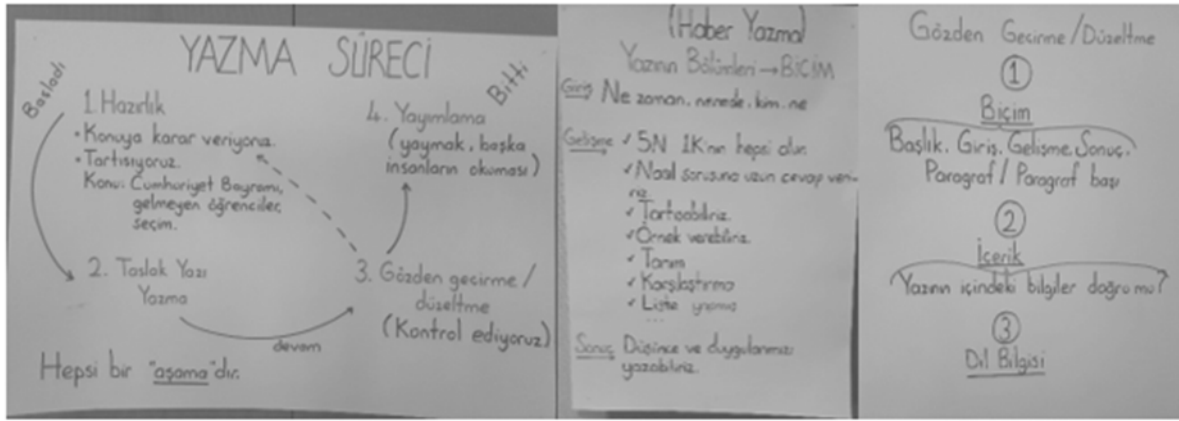 YAZMA SÜRECİ
Başladı
1. Hazırlık
• Konuya karar veriyoruz.
• Tartışıyoruz.
Konu: Cumhuriyet Bayramı,
gelmeyen öğrenciler,
seçim.
2. Taslak Yazı
Yazma
devam
3. Gözden geçirme /
düzeltme
(Kontrol ediyoruz)
4. Yayımlama
(yaymak, başka
insanların okuması)
Bitti
Hepsi bir "aşama"dır.
(Haber Yazma)
Yazının Bölümleri → BİÇİM
Giriş Ne zaman, nerede, kim, ne
Gelişme ✓ 5N 1K'nın hepsi olur.
✓ Nasıl sorusuna uzun cevap veri-
riz.
✓ Tartışabiliriz.
✓ Örnek verebiliriz.
✓ Tanım
✓ Karşılaştırma
✓ Liste
...
Sonuç Düşünce ve duygularımızı
yazabiliriz.
Gözden Geçirme / Düzeltme
1
Biçim
Başlık, Giriş, Gelişme, Sonuç,
Paragraf / Paragraf başı
2
İçerik
Yazının içindeki bilgiler doğru mu?
3
Dil Bilgisi